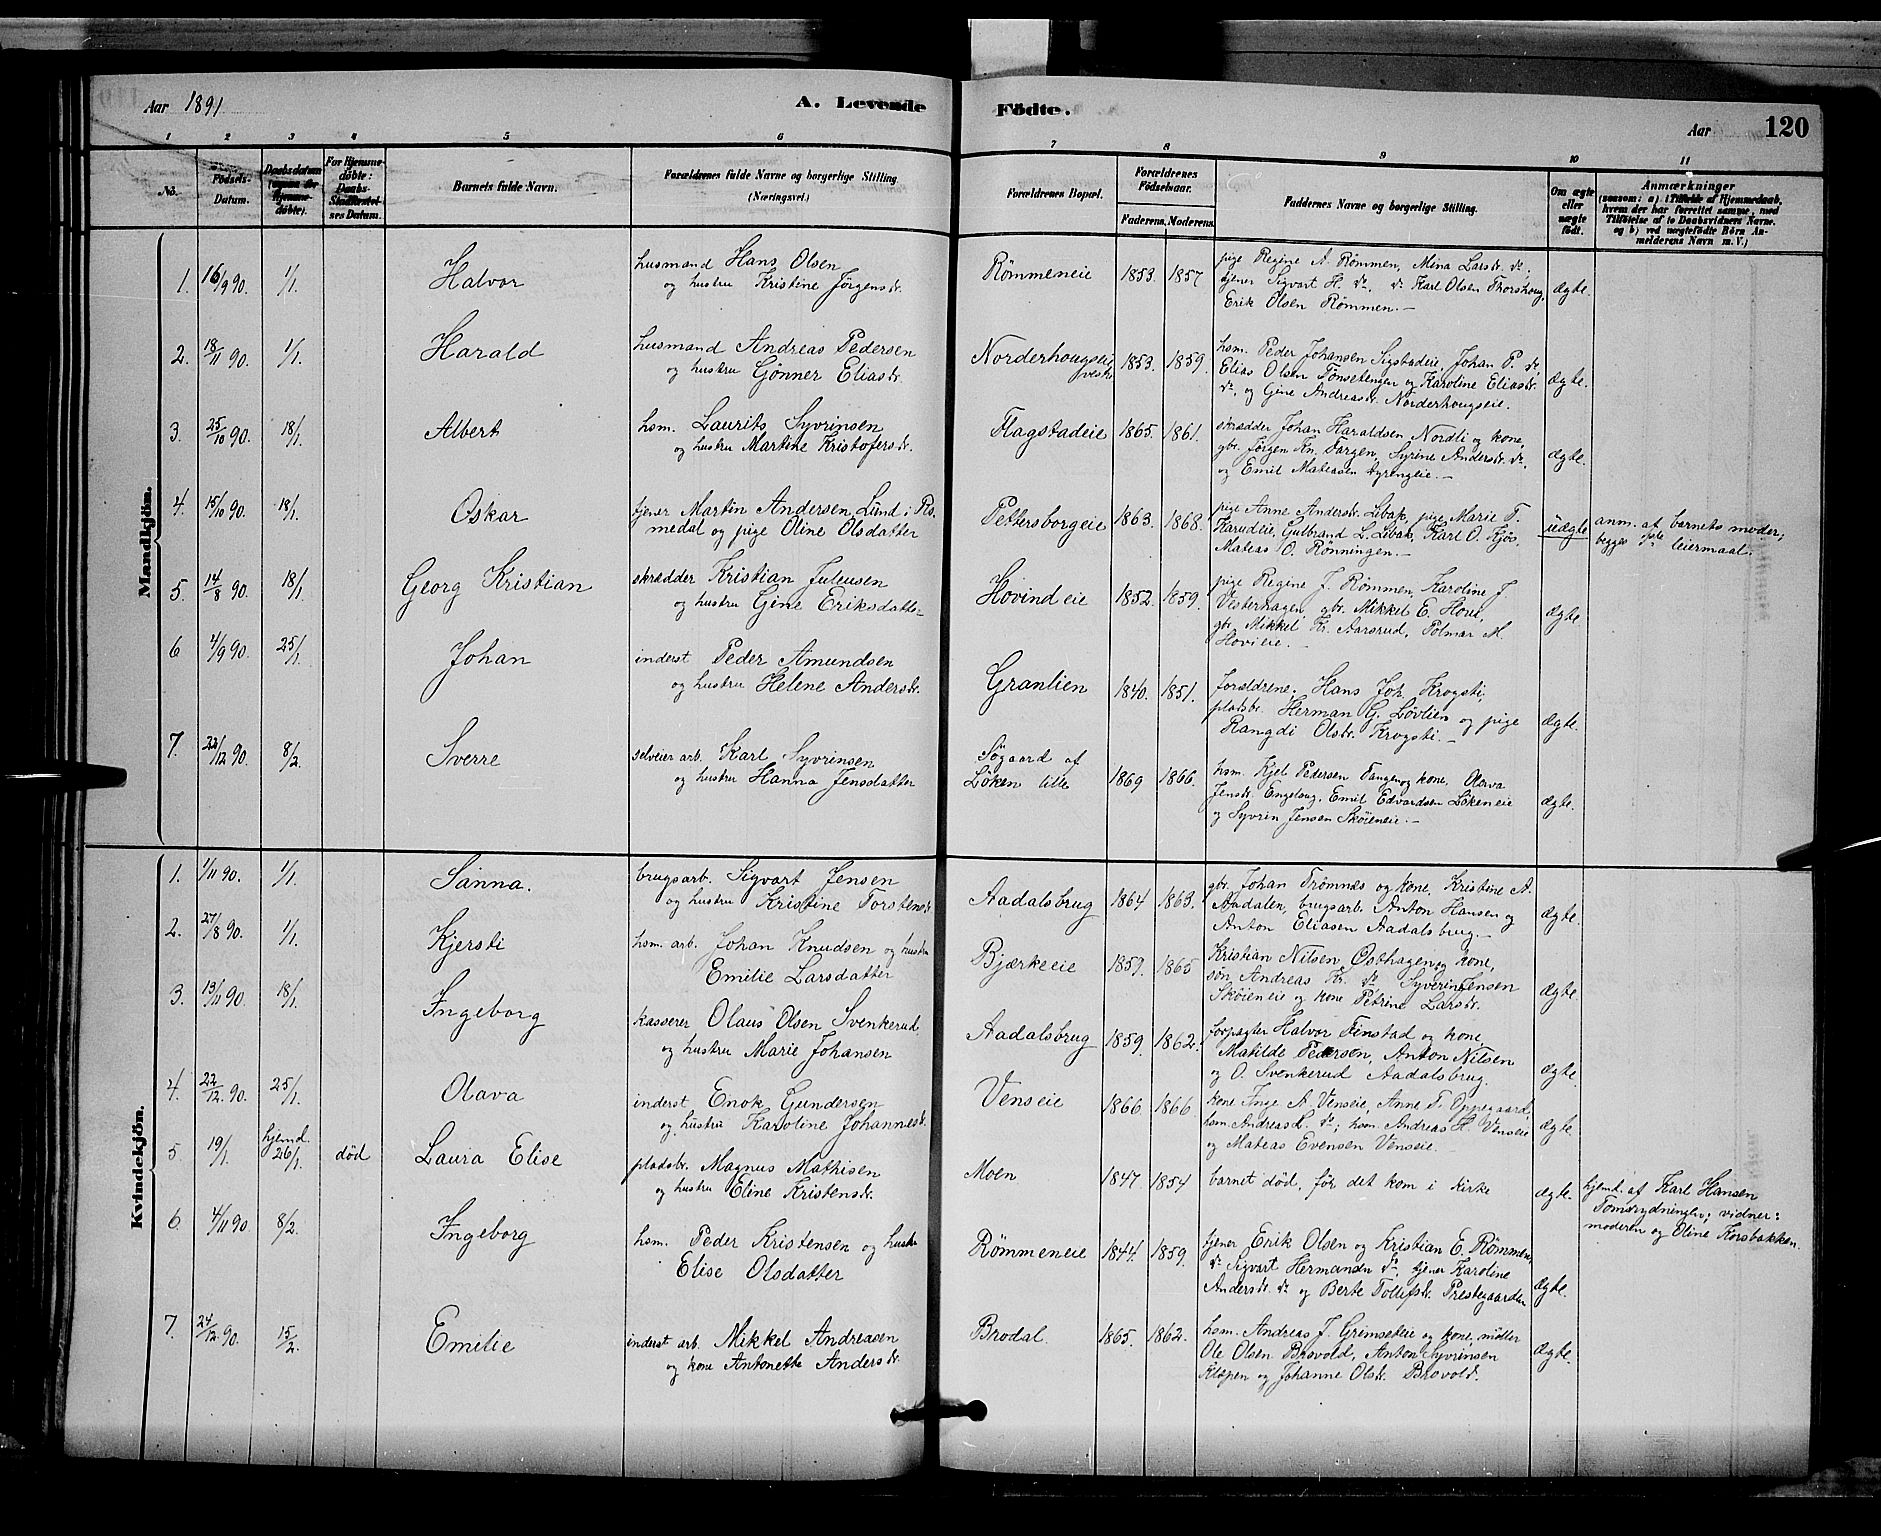 Aar 1891
A. Levende
Födte.
Aar
120
1 2 3 4 5 6 7 8 9 10 11
No.
Födsels-
Datum.
Daabsdatum
For Hjemme-
döbte:
Daabs-
Stadfæstel-
ses Datum.
Barnets fulde Navn.
Forældrenes fulde Navne og borgerlige Stilling
(Næringsvei.)
Forældrenes Bopæl.
Forældrenes
Födselsaar.
Faderens. Moderens.
Faddernes Navne og borgerlige Stilling.
Om ægte
eller
uægte
födt.
Anmærkninger
(saasom: a) i Tilfælde af Hjemmedaab,
hvem der har forrettet samme, med
Tilföielse af to Daabsvidners Navne.
og b) ved uægtefödte Börn An-
melderens Navn m. V.)
Mandkjön.
1. 16/9 90. 1/1. Halvor
husmand Hans Olsen
og hustru Kristine Jörgensdr.
Römmeneie 1853. 1857
pige Regine A. Römmen, Mina Larsdr. do;
tjener Sigvart H. do. do Karl Olsen Thorshoug,
Erik Olsen Römmen.—
ægte.
2. 18/11 90. 1/1. Harald
husmand Andreas Pedersen
og hustru Gönner Eliasdr.
Norderhougseie
vestre
1853. 1859.
hsm. Peder Johansen Sigstadeie, Johan P. do,
Elias Olsen Tönsetengen og Karoline Eliasdr.
do, og Gine Andreasdr. Norderhougseie.
ægte.
3. 25/10 90. 18/1. Albert
hsm. Laurits Syvrinsen
og hustru Martine Kristofersdr.
Flagstadeie 1865. 1861.
skrædder Johan Haraldsen Nordli og kone,
gbr. Jörgen Kn. Fargen, Syrine Andersdr. do.
og Emil Mateasen Byrengeie.—
ægte.
4. 15/10 90. 18/1. Oskar
tjener Martin Andersen Lund i Ro-
medal og pige Oline Olsdatter
Pettersborgeie 1863. 1868.
pige Anne Andersdr. Libak, pige Marie T.
Harudeie, Gulbrand L. Libak, Karl O. Kjös,
Mateas O. Rönningen.—
uægte
anm. af barnets moder;
begges 1ste leiermaal.
5. 14/8 90. 18/1. Georg Kristian
skrædder Kristian Juleusen
og hustru Gine Eriksdatter
Hovindeie 1852. 1859.
pige Regine J. Römmen, Karoline J.
Vesterhagen, gbr. Mikkel E. Hovi,
gbr. Mikkel Kr. Aarsrud, Polmar M.
Hovieie.—
ægte.
6 4/9 90. 25/1. Johan
inderst Peder Amundsen
og hustru Helene Andersdr.
Granlien 1840. 1851.
forældrene, Hans Joh. Krogsti,
pladsbr. Herman G. Lövlien og pige
Rangdi Olsdr. Krogsti.—
ægte.
7. 22/12 90. 8/2. Sverre
selveier arb. Karl Syvrinsen
og hustru Hanna Jensdatter
Sögaard af
Löken lille
1869 1866.
hsm. Kjel Pedersen Tangen og kone, Olava
Jensdr. Engelaug, Emil Edvardsen Lökeneie
og Syvrin Jensen Sköieneie.—
ægte.
Kvindekjön.
1. 1/11 90. 1/1. Sanna.
brugsarb. Sigvart Jensen
og hustru Kristine Torstensdr.
Aadalsbrug 1864 1863.
gbr. Johan Trömnæs og kone, Kristine A.
Aadalen, brugsarb. Anton Hansen og
Anton Eliasen Aadalsbrug.—
ægte.
2. 27/8 90. 1/1. Kjersti
hsm. arb. Johan Knudsen og hustru
Emilie Larsdatter
Bjærkeeie 1859. 1865
Kristian Nilsen Östhagen og kone,
sön Andreas Kr. do Syverin Jensen
Sköieneie og kone Petrine Larsdr.
ægte.
3. 13/11 90. 18/1. Ingeborg
kasserer Olaus Olsen Svenkerud,
og hustru Marie Johansen
Aadalsbrug 1859. 1862.
forpagter Halvor Finstad og kone,
Matilde Pederson, Anton Nilsen
og O. Svenkerud Aadalsbrug.
ægte.
4. 22/12 90. 25/1. Olava
inderst Enok Gundersen
og hustru Karoline Johannesdr.
Venseie 1866 1866
kone Inge A. Venseie, Anne T. Oppegaard,
hsm. Andreas L. do; hsm. Andreas H. Venseie
og Mateas Evensen Venseie.
ægte.
5. 19/1. hjemd. 26/1. död Laura Elise
pladsbr. Magnus Mathisen
og hustru Eline Kristensdr.
Moen 1847. 1854
barnet död, för det kom i kirke
ægte.
hjemd. af Karl Hansen
Tomsrydningen; vidner:
moderen og Oline Korsbakken.
6. 4/11 90. 8/2. Ingeborg
hsm. Peder Kristensen og hustru
Elise Olsdatter
Römmeneie 1844 1859.
tjener Erik Olsen og Kristian E. Römmen,
do Sigvart Hermandsn do, tjener Karoline
Andersdr. do og Berte Tollefsdr. Prestegaarden
ægte.
7. 24/12 90. 15/2. Emilie
inderst arb. Mikkel Andreasen
og kone Antonette Andersdr.
Brodal. 1865. 1862.
hsm. Andreas J. Grimseteie og kone, möller
Ole Olsen Brovold, Anton Syvrinsen
Klöpen og Johanne Olsdr. Brovold.
ægte.